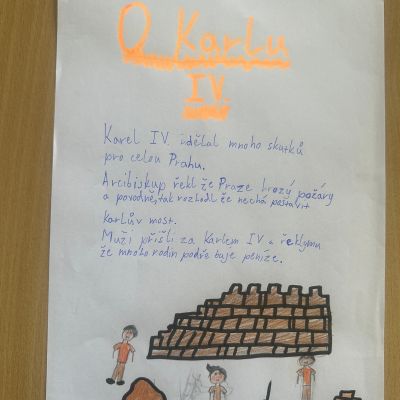 O Karlu
IV.
Karel IV. udělal mnoho skutků
pro celou Prahu.
Arcibiskup řekl že Praze hrozý požáry
a povodně, tak rozhodl že nechá postavit
Karlův most.
Muži přišli za Karlem IV a řekly mu
že mnoho rodin potře buje peníze.